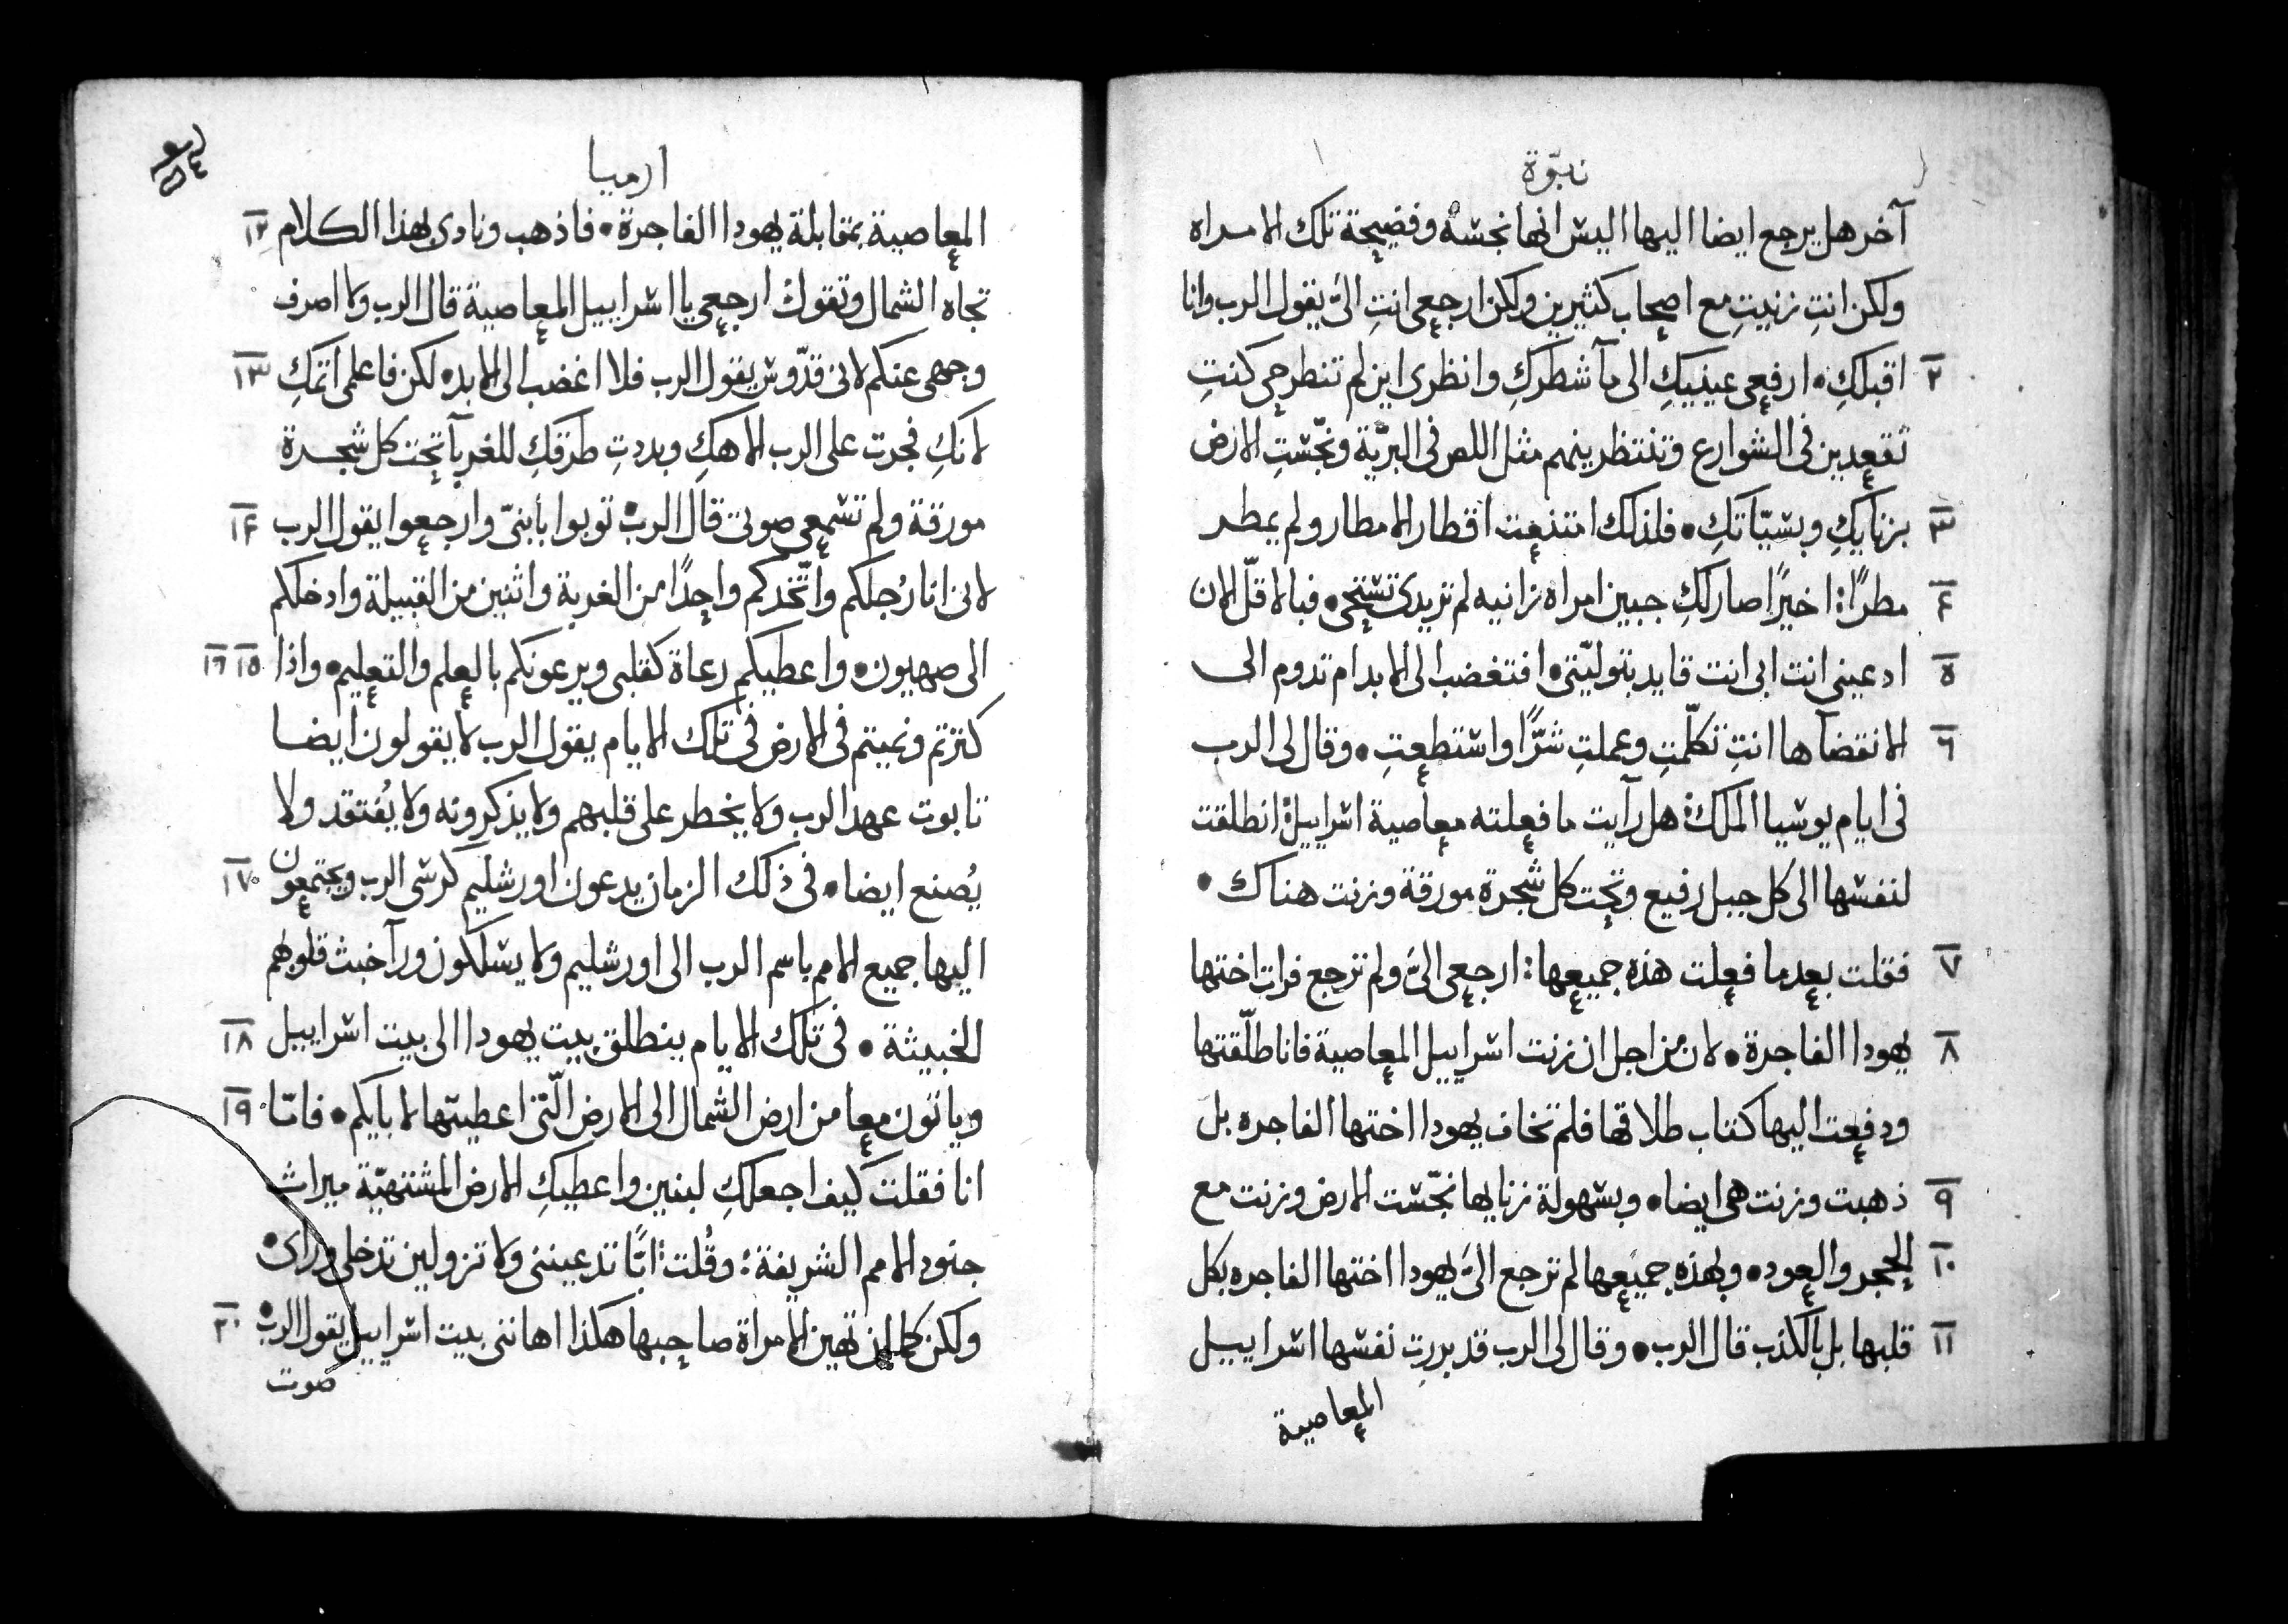 نبوّة
آخر هل يرجع ايضا اليها اليس انها نجسة وفضيحة تلك الامراه
ولكن انتِ زنيتِ مع اصحاب كثيرين ولكن ارجعي انتِ اليَّ يقول الرب وانا
٢ اقبلكِ • ارفعي عينيكِ الى مآ شطركِ وانظرى اين لم تنطرحي كنتِ
تقعدين فى الشوارع وتنتظرينهم مثل اللص فى البريّة ونجّستِ الارض
٣ بزنايكِ وبسيّاتكِ • فلذلك امتنعت اقطار الامطار ولم يمطر
٤ مطرًا : اخيرًا صار لكِ جبين امراه زانيه لم تريدى تستحي • فبالاقلّ الان
٥ ادعينى انت ابى انت قايد بتوليّتى • افتغضب الى الابد ام تدوم الى
٦ الانقضآ ها انتِ تكلّمتِ وعملتِ شرًّا واستطعتِ • وقال لى الرب
فى ايام يوشيا الملك : هل رآيت ما فعلته معاصية اسراييل : انطلقت
لنفسها الى كل جبل رفيع وتحت كل شجرة مورقة وزنت هناك •
٧ فقلت بعدما فعلت هذه جميعها : ارجعي اليَّ ولم ترجع فرات اختها
٨ يهودا الفاجرة • لان من اجل ان زنت اسراييل المعاصية فانا طلّقتها
ودفعت اليها كتاب طلاقها فلم تخاف يهودا اختها الفاجره بل
٩ ذهبت وزنت هى ايضا • وبسهولة زنايها نجّست الارض وزنت مع
١٠ الحجر والعود • وبهذه جميعها لم ترجع اليَّ يهودا اختها الفاجره بكل
١١ قلبها بل بالكذب قال الرب • وقال لى الرب قد بررت نفسها اسراييل
المعاصية
ارميا
المعاصية بمقابلة يهودا الفاجرة • فاذهب ونادى بهذا الكلام ١٢
تجاه الشمال وتقول ارجعي يا اسراييل المعاصية قال الرب ولا اصرف
وجهى عنكم لانى قدّوس يقول الرب فلا اغضب الى الابد • لكن فاعلمى اثمكِ ١٣
لانكِ فجرت على الرب الاهكِ وبددتِ طرقكِ للغربآ تحت كل شجرة
مورقة ولم تسمعي صوتى قال الرب • توبوا يا بنىّ وارجعوا يقول الرب ١٤
لانى انا رُجلكم واتّخذكم واحدًا من القرية واثنين من القبيلة وادخلكم
الى صهيون • واعطيكم رعاة كقلبى ويرعونكم بالعلم والتعليم • واذا ١٥ ١٦
كثرتم ونميتم فى الارض فى تلك الايام يقول الرب لا يقولون ايضا
تابوت عهد الرب ولا يخطر على قلبهم ولا يذكرونه ولا يُفتقد ولا
يُصنع ايضا • فى ذلك الزمان يدعون اورشليم كرسى الرب ويجتمعون ١٧
اليها جميع الامم باسم الرب الى اورشليم ولا يسلكون ورآ خبث قلوبهم
الخبيثة • فى تلك الايام ينطلق بيت يهودا الى بيت اسراييل ١٨
وياتون معا من ارض الشمال الى الارض الّتى اعطيتها لابآيكم • فامّا ١٩
انا فقلت كيف اجعلكِ لبنين واعطيكِ الارض المشتهيّة ميراث
جنود الامم الشريفة : وقُلت : ابًا تدعيننى ولا تزولين تدخلى ورائى •
ولكن كما ان تهين الامراة صاحبها هكذا اهانتى بيت اسراييل يقول الرب • ٢٠
صوت